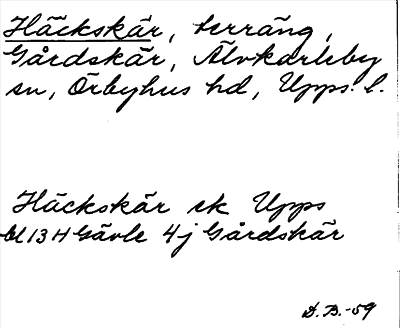 Häckskär, terräng,
Gårdskär, Älvkarleby
sn, Örbyhus hd, Upps. l.
Häckskär ek Upps
bl 13 H Gävle 4j Gårdskär
D.B.-59